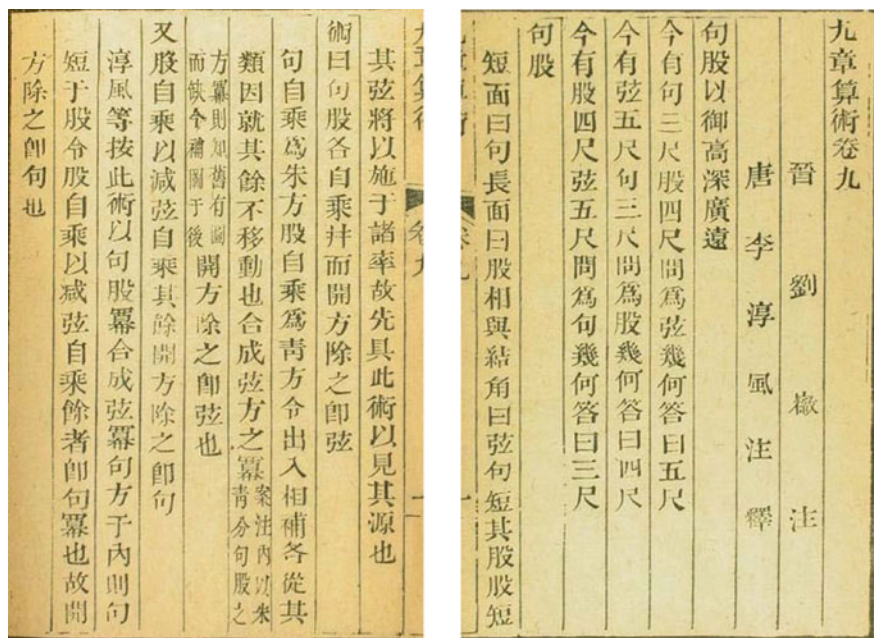 九章算術卷九
晉劉徽注
唐李淳風注釋
句股以御高深廣遠
今有句三尺股四尺問爲弦幾何答曰五尺
今有弦五尺句三尺問爲股幾何答曰四尺
今有股四尺弦五尺問爲句幾何答曰三尺
句股
短面曰句長面曰股相與結角曰弦句短其股股短
九章算術 卷九 一
九章算術 卷九 一
其弦將以施于諸率故先具此術以見其源也
術曰句股各自乘并而開方除之卽弦
句自乘爲朱方股自乘爲靑方令出入相補各從其
類因就其餘不移動也合成弦方之冪案注內以朱
靑分句股之
方冪則知舊有圖
而缺今補圖于後開方除之卽弦也
又股自乘以減弦自乘其餘開方除之卽句
淳風等按此術以句股冪合成弦冪句方于內則句
短于股令股自乘以減弦自乘餘者卽句冪也故開
方除之卽句也